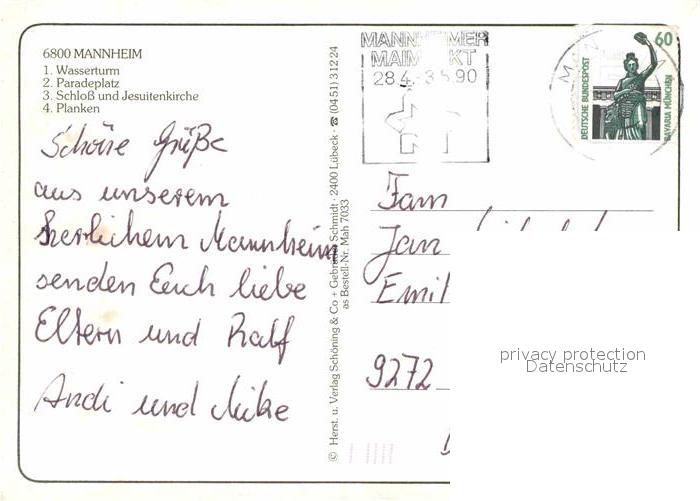 6800 MANNHEIM
1. Wasserturm
2. Paradeplatz
3. Schloß und Jesuitenkirche
4. Planken
Schöne Grüße
aus unserem
herrlichem Mannheim
senden Euch liebe
Eltern und Ralf
Andi und Mike
© Herst. u. Verlag Schöning & Co + Gebrüder Schmidt · 2400 Lübeck · ☎ (0451) 31224
as Bestell-Nr. Mah 7033
MANNHEIMER
MAIMARKT
28.4.-3.5.90
60
DEUTSCHE BUNDESPOST
BAVARIA MÜNCHEN
Fam
Jan
Emil
9272
privacy protection
Datenschutz